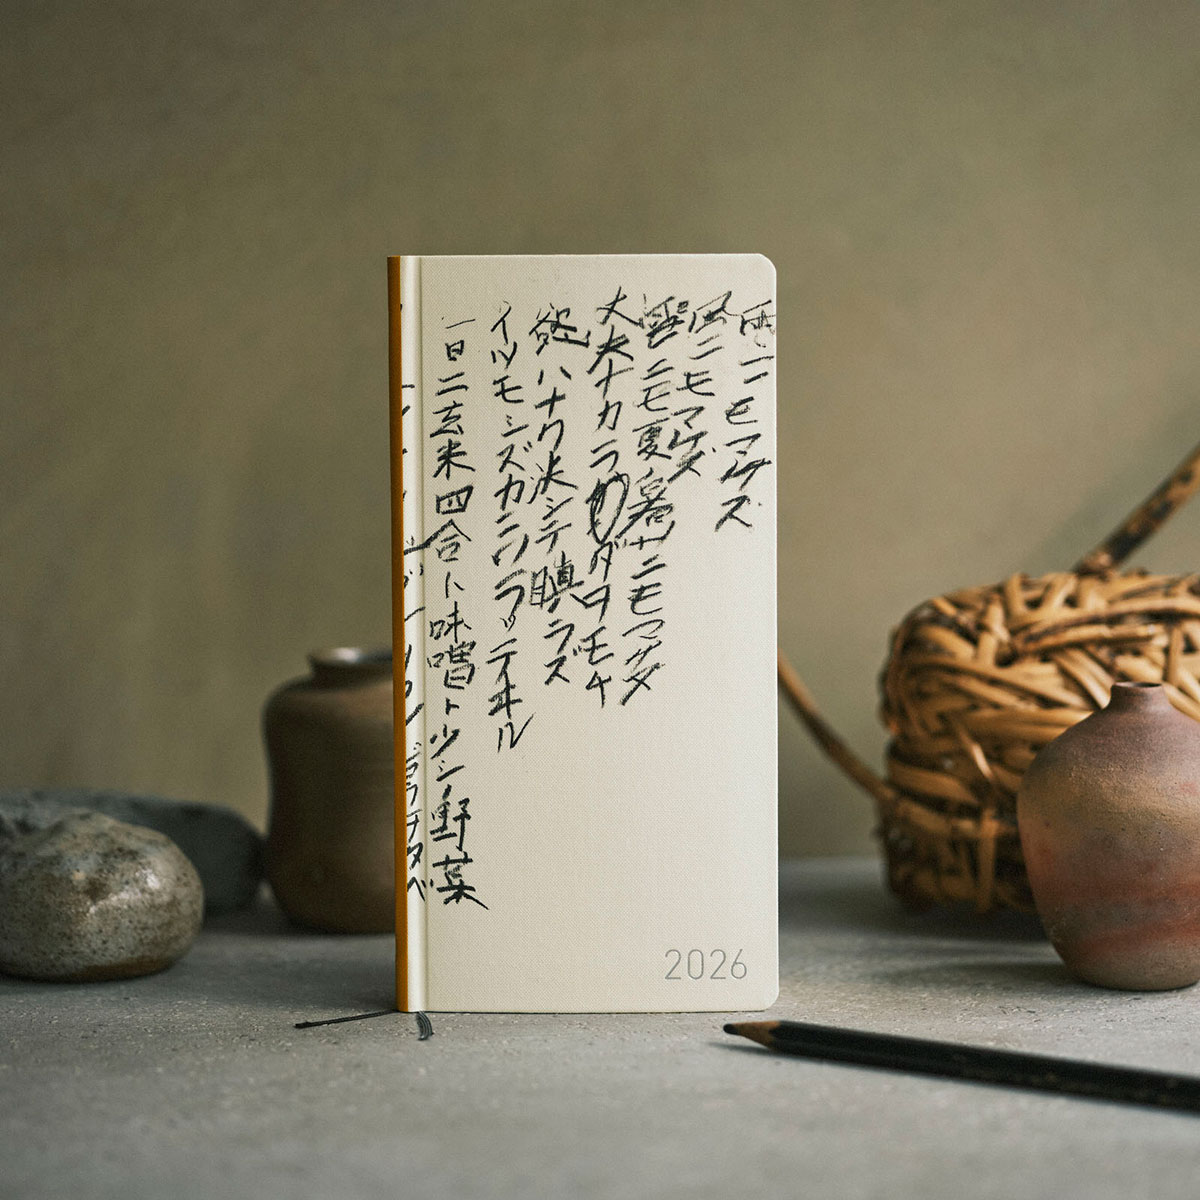 雨ニモマケズ
風ニモマケズ
雪ニモ夏ノ暑サニモマケヌ
丈夫ナカラダヲモチ
慾ハナク決シテ瞋ラズ
イツモシズカニワラッテヰル
一日ニ玄米四合ト味噌ト少シノ野菜
ヲタベ
2026